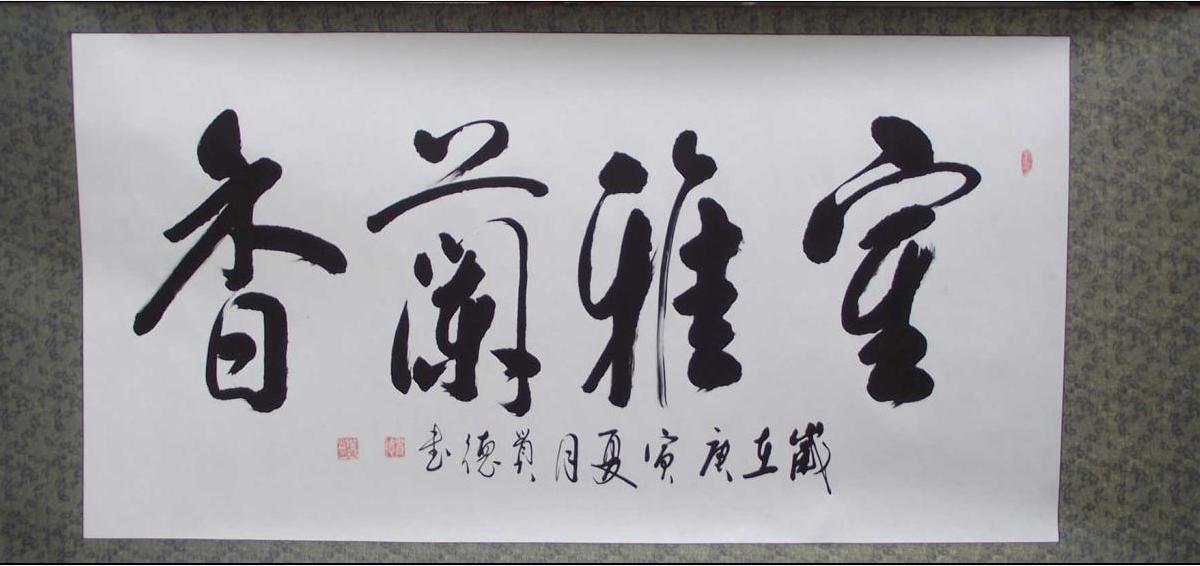 室雅蘭香
歲在庚寅夏月贊德书